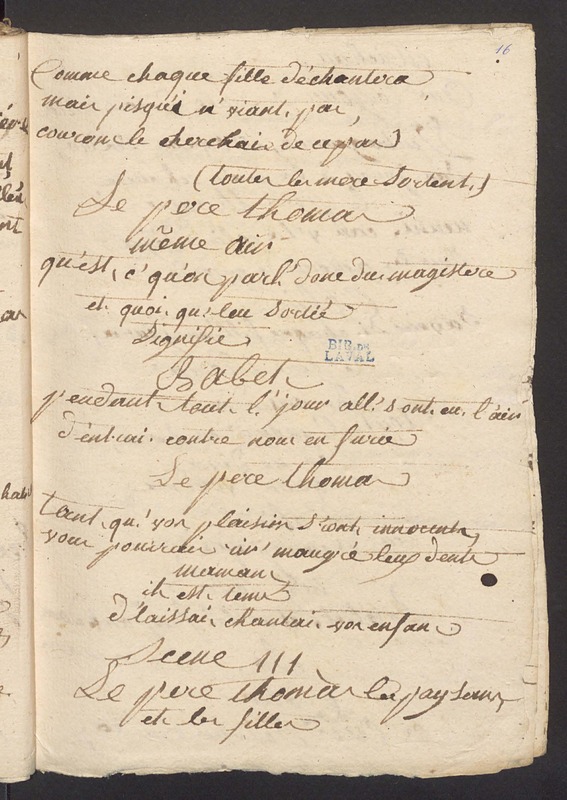 16
Comme chaque fille déchantera
mais pisqu'i n' viant pas
courons le cherchai de ce pas
(toutes les mere sortent)
Le pere thomas
même air
qu'est c' qu'on parl' donc du magistere
et quoi qu' leu sortie
signifie
BIB. DE
LAVAL
Babet
pendant tout l' jour all' sont en l'air
d'entrai contre nous en furie
Le pere thomas
tant qu' vos plaisirs s'ront innocents
vous pourrai rir' maugré leux dents
maman
il est tems
d' laissai chantai vos enfans
Scene III
Le pere thomas les paysans
et les filles